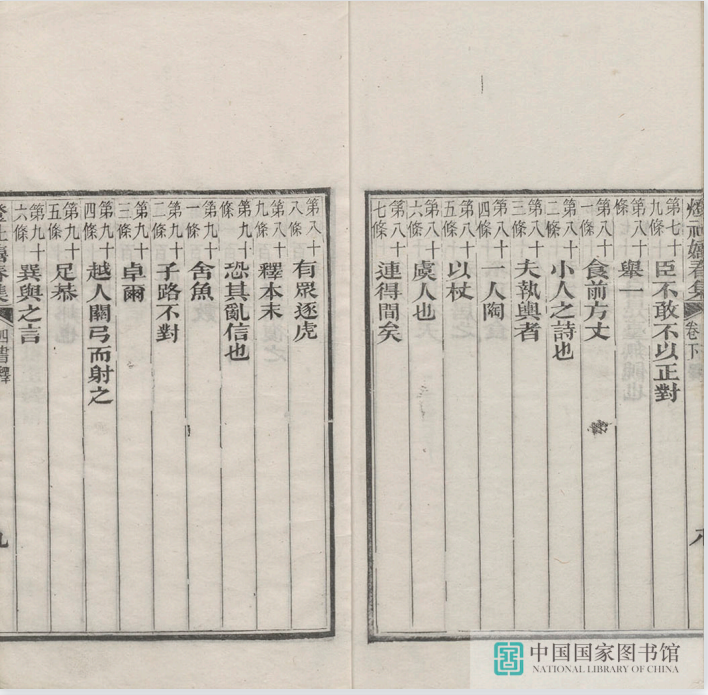 燈社嬉春集 卷下
第七十九條 臣不敢不以正對
第八十條 舉一
第八十一條 食前方丈
第八十二條 小人之詩也
第八十三條 夫執輿者
第八十四條 一人陶
第八十五條 以杖
第八十六條 虞人也
第八十七條 連得間矣
第八十八條 有眾逐虎
第八十九條 釋本末
第九十條 恐其亂信也
第九十一條 舍魚
第九十二條 子路不對
第九十三條 卓爾
第九十四條 越人關弓而射之
第九十五條 足恭
第九十六條 巽與之言
燈社嬉春集 四書 釋 九
中国国家图书馆
NATIONAL LIBRARY OF CHINA